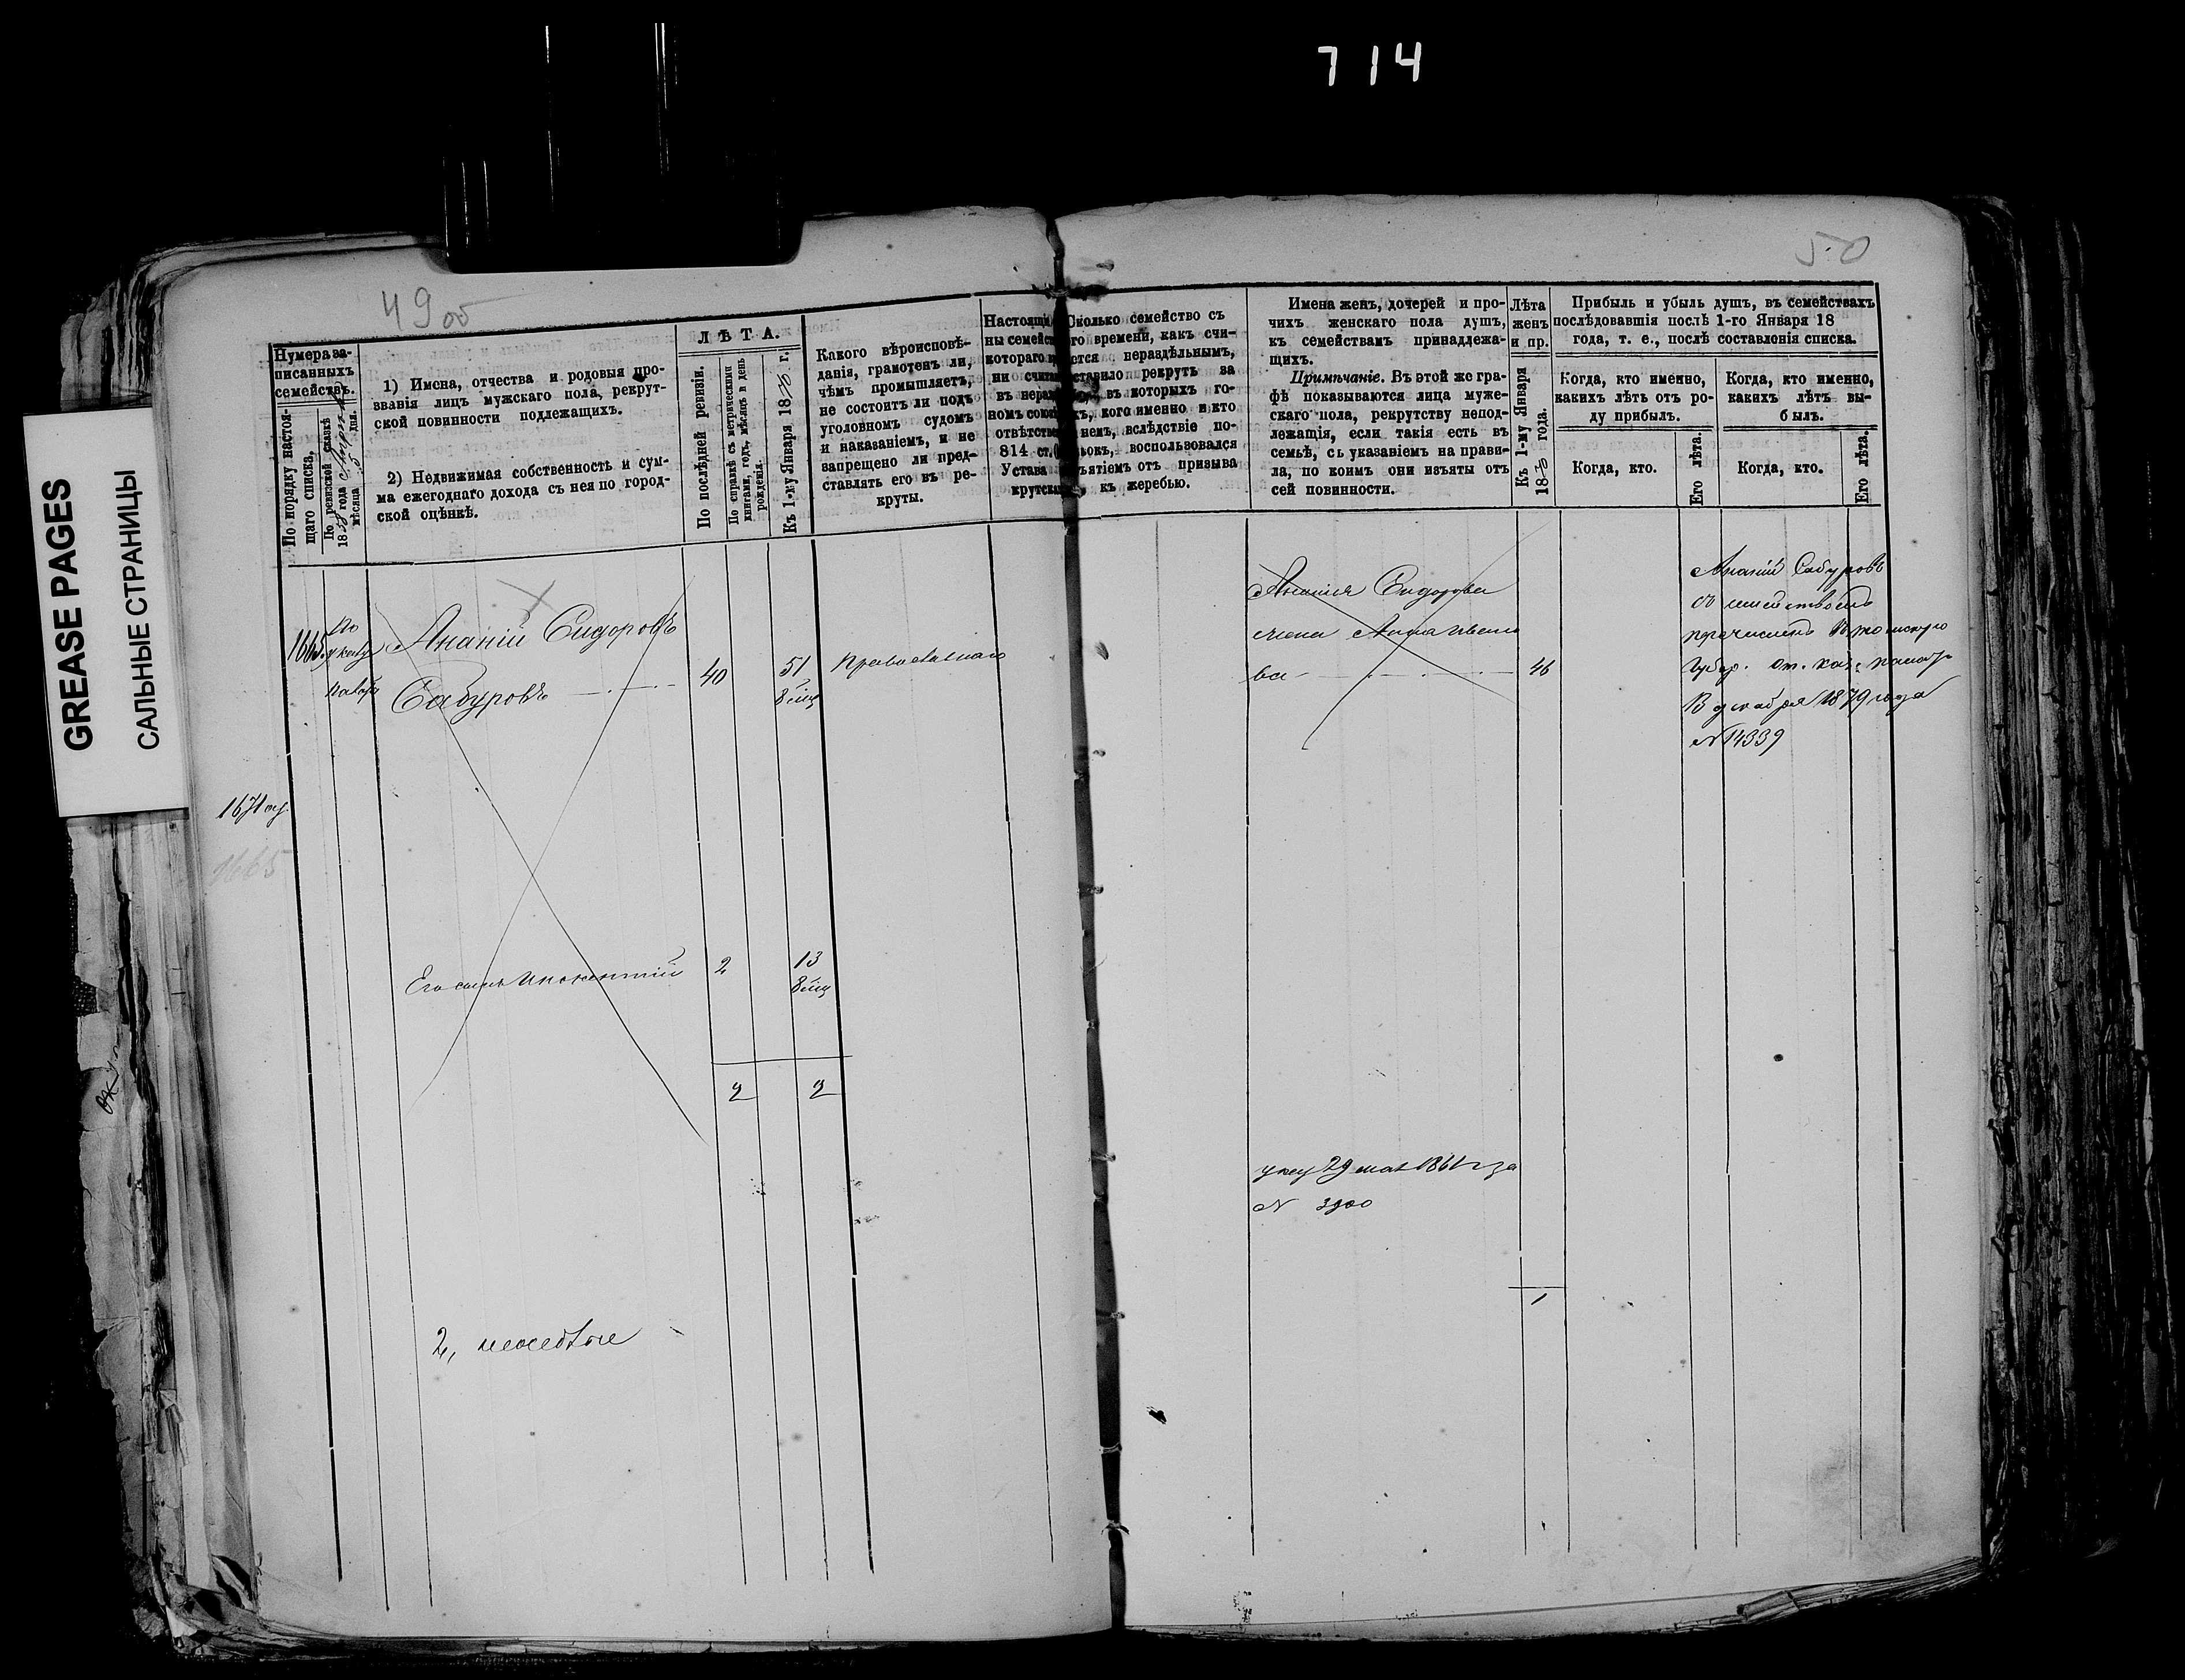 714
GREASE PAGES
САЛЬНЫЕ СТРАНИЦЫ
49 об
50
Нумера за-
писанныхъ
семействъ.
По порядку настоя-
щаго списка.
По ревизской сказкѣ
18 года
мѣсяца 5 дня.
1) Имена, отчества и родовыя про-
званія лицъ мужскаго пола, рекрут-
ской повинности подлежащихъ.
2) Недвижимая собственность и сум-
ма ежегоднаго дохода съ нея по город-
ской оцѣнкѣ.
ЛѢТА.
По послѣдней ревизіи.
По справкѣ съ метрическими
книгами, годъ, мѣсяцъ и день
рожденія.
Къ 1-му Января 1870 г.
Какого вѣроисповѣ-
данія, грамотенъ ли,
чѣмъ промышляетъ,
не состоитъ ли подъ
уголовномъ судомъ
и наказаніемъ, и не
запрещено ли пред-
ставлять его въ ре-
круты.
Сколько семейство съ
го времени, какъ счи-
ется нераздѣльнымъ,
ставило рекрутъ за
въ которыхъ го-
хъ, кого именно и кто
немъ, вслѣдствіе по-
воспользовался
ъятіемъ отъ призыва
къ жеребью.
Имена женъ, дочерей и про-
чихъ женскаго пола душъ,
къ семействамъ принадлежа-
щихъ.
Примѣчаніе. Въ этой же гра-
фѣ показываются лица муже-
скаго пола, рекрутству непод-
лежащія, если такія есть въ
семьѣ, съ указаніемъ на прави-
ла, по коимъ они изъяты отъ
сей повинности.
Лѣта
женъ
и пр.
Къ 1-му Января
1870 года.
Прибыль и убыль душъ, въ семействахъ
послѣдовавшія послѣ 1-го Января 18
года, т. е., послѣ составленія списка.
Когда, кто именно,
какихъ лѣтъ отъ ро-
ду прибылъ.
Когда, кто.
Его лѣта.
Когда, кто именно,
какихъ лѣтъ вы-
былъ.
Когда, кто.
Его лѣта.
1665
по
указу
палаты
Ананій Сидоровъ
Сабуровъ
40
51
Православнаго
Ананія Сидорова
жена Анна Ивано
ва
46
Ананій Сабуровъ
съ семействомъ
причисленъ
Губер.
декабря 1879 года
№ 14339
1671
1665
Его сынъ Инокентій
2
13
2
2
указ 29 мая 1861 г за
№ 3900
1
2,